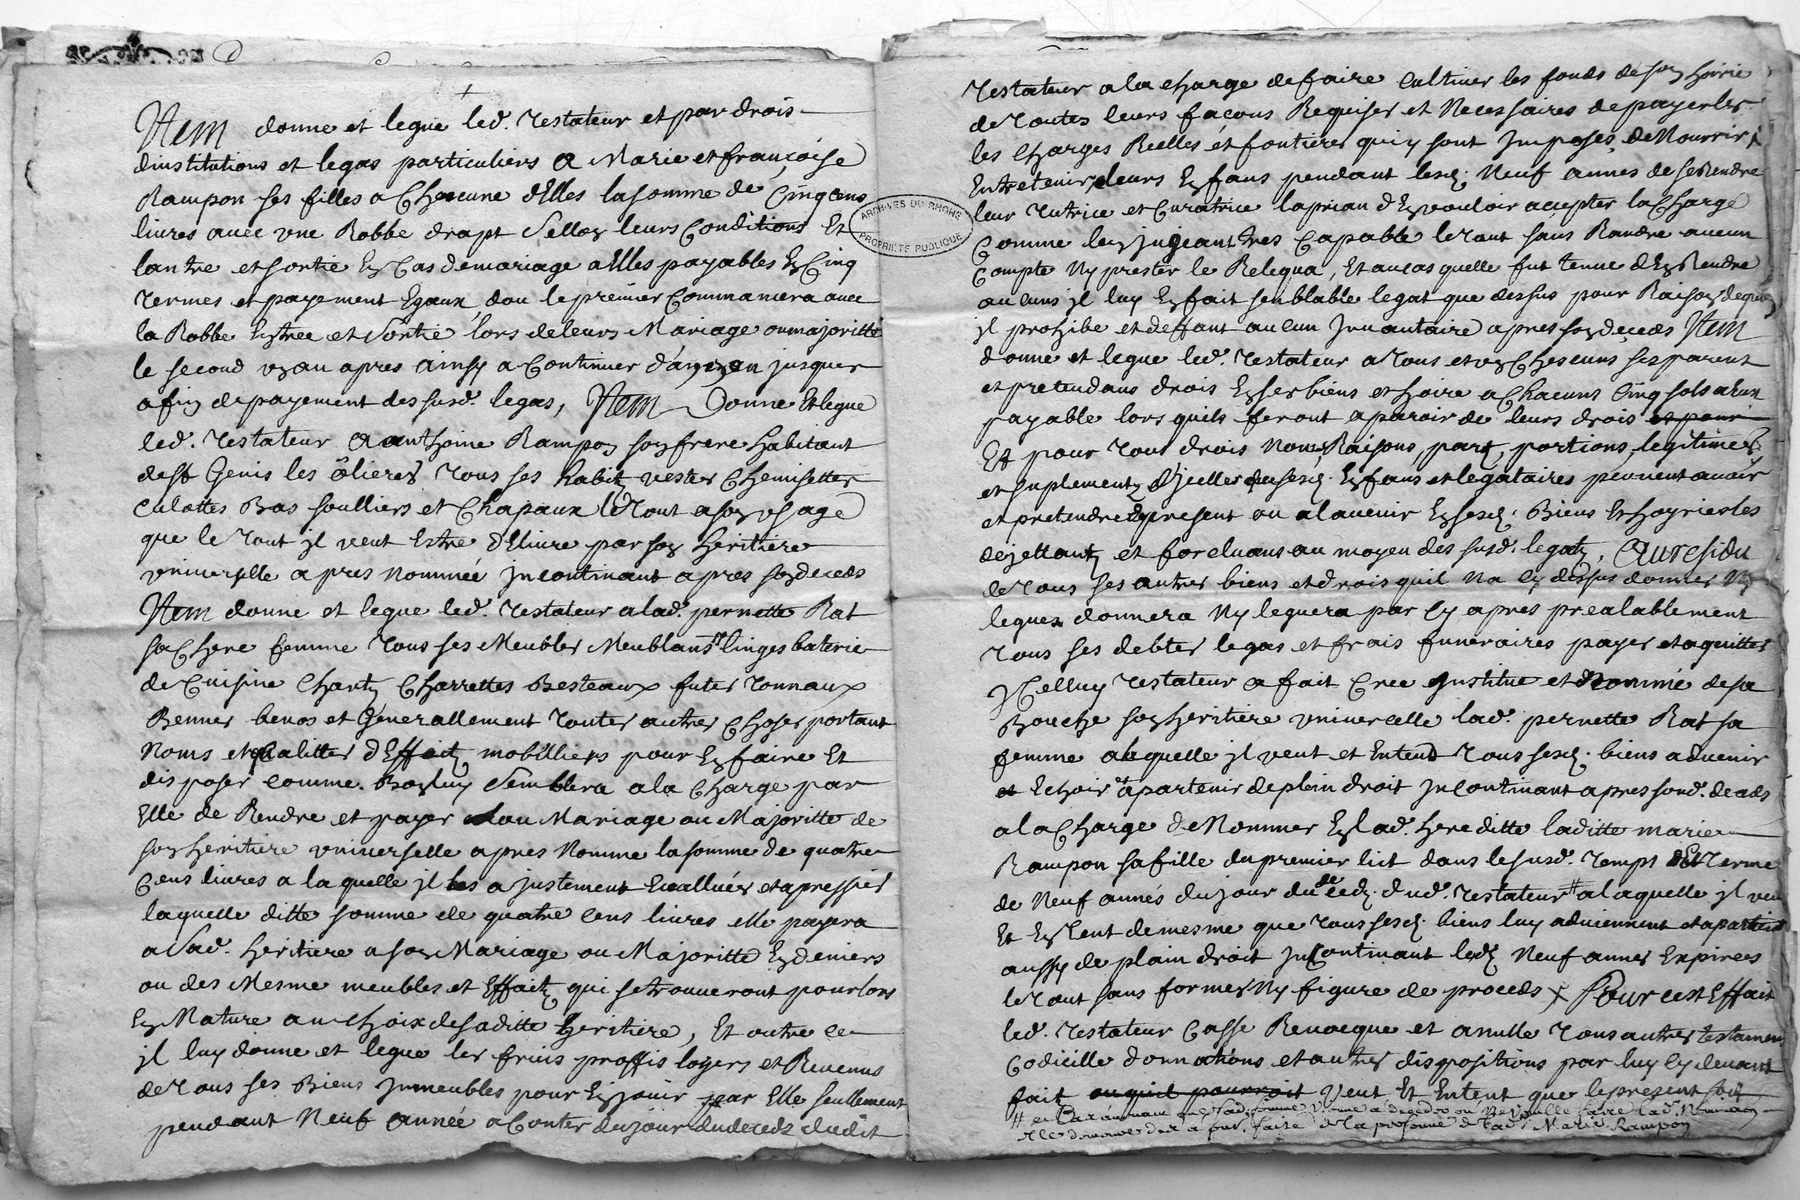 Item donne et legue led. testateur et par drois
dinstitutions et legas particuliers a Marie et françoise
Rampon ses filles a Chacune d'Elles la somme de Cinq cens
livres avec une Robbe drapt Sellon leurs Conditions Et
lantre et sortie En Cas de mariage a Elles payables En Cinq
termes et payement Egaux, dou le premier Commancera avec
la Robbe Entree et Sortie lors de leurs Mariage ou majoritte
le second un an apres ainsy a Continuer d'an en an jusques
a fin de payement des susd. legas, Item Donne Et legue
led. testateur a anthoine Rampon son frere habitant
de st Genis les ôlieres tous ses habitz vestes Chemisettes
Culottes Bas soulliers et Chapaux le tout a son usage
que le tout jl veut Estre délivre par son heritiere
universelle apres nommée jncontinant apres son deceds
Item donne et legue led. testateur a lad. pernette Rat
sa Chere femme tous ses Meubles Meublans linges baterie
de Cuisine Chartz Charrettes Besteaux futes tonnaux
Bennes benos et Generallement toutes autres Choses portant
Noms et qualittes d'Effaitz mobilliers pour En faire Et
disposer comme Bon luy Semblera a la Charge par
Elle de Rendre et payer au Mariage ou Majoritte de
son heritiere universelle apres Nomme la somme de quatre
Cens livres a la quelle jl les a justement Evalluer et apressier
laquelle ditte somme de quatre cens livres elle payera
a Sad. heritiere a son Mariage ou Majoritte En deniers
ou des Mesme meubles et Effaitz qui se trouveront pour lors
En Nature au choix de saditte heritiere, Et outre ce
jl luy donne et legue les fruis proffis loyers et Revenus
de tous ses Biens jmmeubles pour En jouir par Elle seullement
pendant Neuf année a Conter du jour du deceds dudit
ARCHIVES DU RHONE
PROPRIETE PUBLIQUE
testateur a la charge de faire cultiver les fonds de son hoirie
de toutes leurs façons Requises et Necessaires de payer les
les Charges Reelles et fontieres qui y sont Jmposés, de Nourrir
Entretenir leurs Enfans pendant lesd. Neuf annes de se Rendre
leur tutrice et Curatrice la prian d'En vouloir accepter la Charge
Comme le jugeant tres Capable le tout sans Randre aucun
Compte Ny prester le Relequa, Et au cas quelle fut tenue d'En Rendre
aucuns jl luy En fait semblable legat que dessus pour Raison de quoy
jl prohibe et deffant aucun Jnvantaire apres son deceds Item
donne et legue led. testateur a tous et un Chescuns ses parent
et pretendans drois En ses biens et hoire a Chacuns Cinq sols a Eux
payable lors quils feront aparoir de leurs drois et pour
Et pour tous drois Noms Raisons, part, portions, legitimes
et suplementz d'Jcelles que sesd. Enfans et legataires peuvent avoir
et pretendre a present ou alavenir En sesd. Biens Et hoyries les
dejettantz et forcluans au moyen des susd. legatz, Au residu
de tous ses autres biens et drois quil Na Cy dessus donner Ny
leguer donnera Ny leguera par Cy apres prealablement
tous ses debtes legas et frais funeraires payes et aquittes
Jcelluy testateur a fait Cree Jnstitue et Nommé de sa
Bouche son heritiere universelle lad. pernette Rat sa
femme a laquelle jl veut et Entend tous sesd. biens advenir
et Echoir apartenir de plein droit Jncontinant apres sond. deceds
a la Charge de Nommer En lad. hereditte laditte marie
Rampon sa fille du premier lict dans le susd. temps Et terme
de Neuf annés du jour du deceds dud. testateur # a laquelle jl veu
Et Entent de mesme que tous sesd. biens luy adviennent et apartient
aussy de plain droit Jncontinant lesd. Neuf annes Expirees
le tout sans former Ny figure de proceds Pour cest Effait
led. testateur Casse Revocque et anulle tous autres testamens
Codicille donnations et autres dispositions par luy Cy devant
fait ou quil pourroit Veut Et Entent que le present soit
# et a lad. Nommon
elle demeure des a pnt. faite de la personne de lad. Marie Rampon